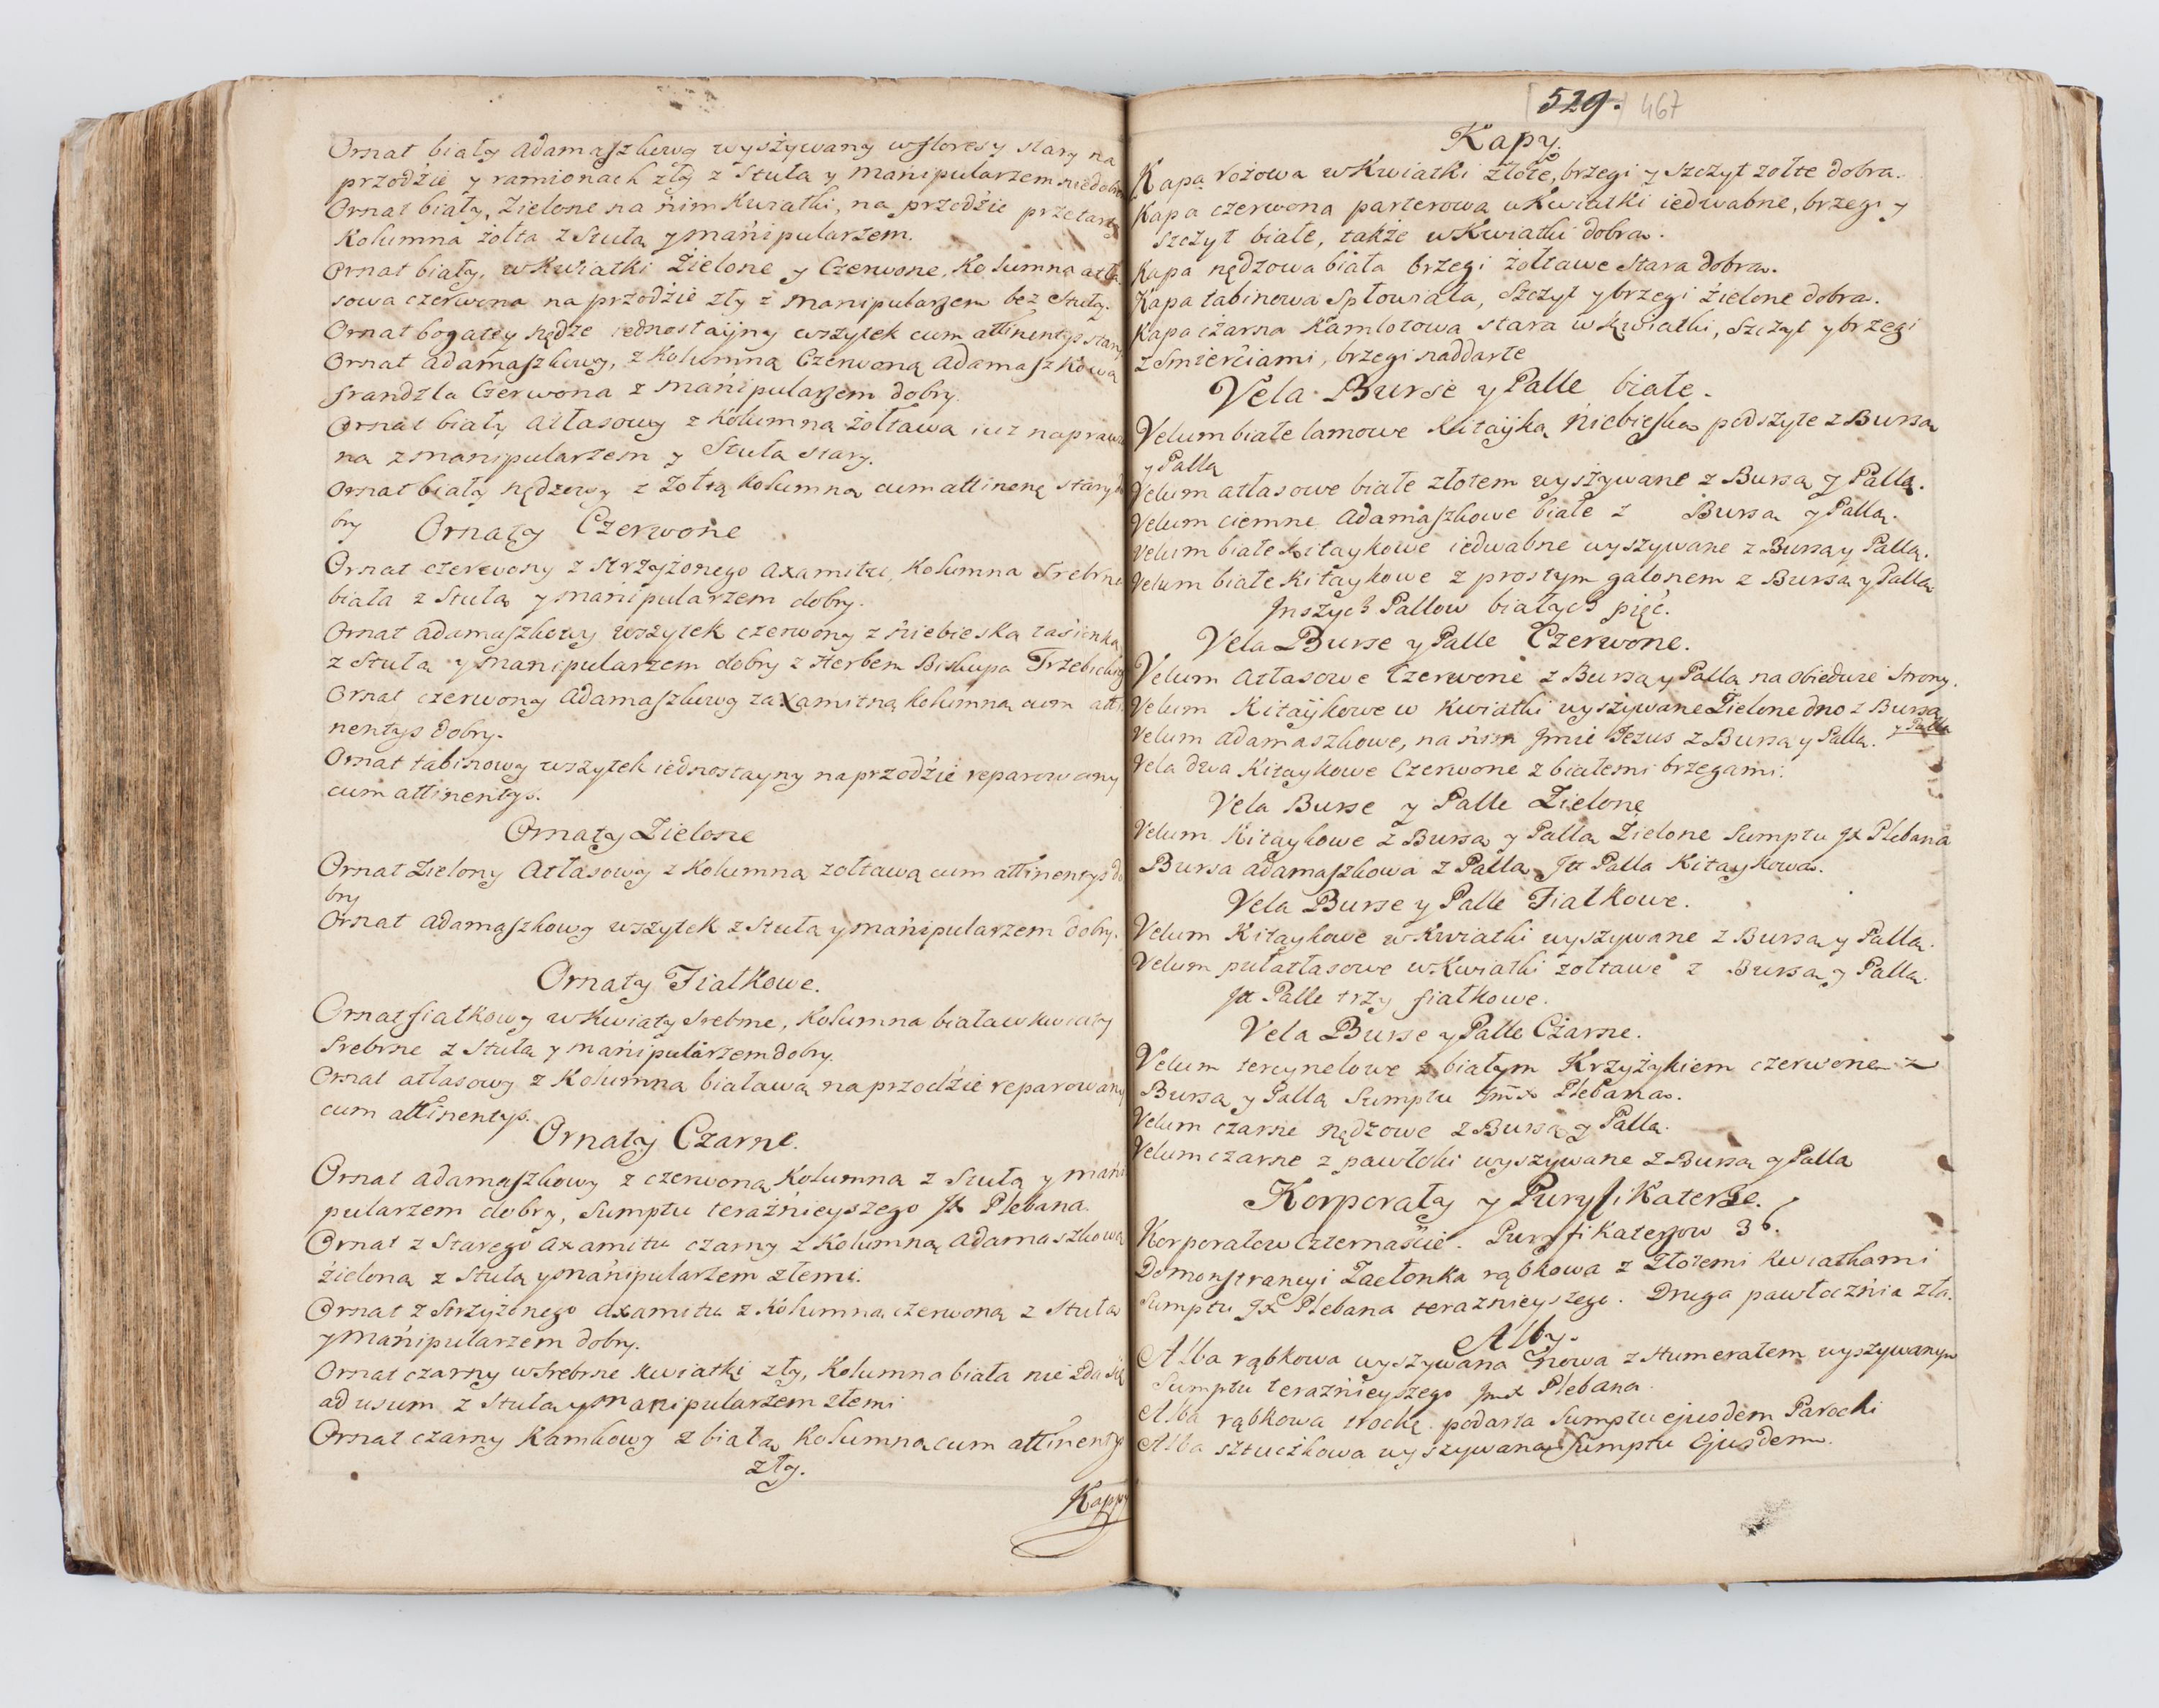 Ornat biały Adamaszkowy wyszywany w floresy stary na
przodzie y ramionach zły z Stułą y Manipularzem niedobry
Ornat biały, Zielone na nim Kwiatki, na przodzie przetarty
Kolumna żołta z Stułą y Manipularzem.
Ornat biały, w Kwiatki Zielone y Czerwone, Kolumna atła
sowa czerwona na przodzie zły z Manipularzem bez Stuły.
Ornat bogatey nędze iednostayny wszytek cum attinentys stary
Ornat Adamaszkowy, z Kolumną Czerwoną Adamaszkową
frandzla Czerwona z Manipularzem dobry.
Ornat biały Atłasowy z Kolumną żołtawą iuz naprawio
na z manipularzem y Stułą stary.
Ornat biały nędzowy z Zołtą Kolumną cum attinent stary do
bry
Ornaty Czerwone
Ornat czerwony z Strzyżonego Axamitu, Kolumna Srebrna
biała z Stułą y Manipularzem dobry.
Ornat Adamaszkowy wszytek czerwony z niebieską tasiemką
z Stułą y Manipularzem dobry z Herbem Biskupa Trzebickiego
Ornat czerwony Adamaszkowy z axamitną kolumną cum atti
nentys dobry.
Ornat tabinowy wszytek iednostayny na przodzie reparowany
cum attinentys.
Ornaty Zielone
Ornat Zielony Atłasowy z Kolumną zołtawą cum attinentys do
bry
Ornat Adamaszkowy wszytek z Stułą y Manipularzem dobry.
Ornaty Fiałkowe.
Ornat fiałkowy w Kwiaty Srebrne, Kolumna biała w kwiaty
Srebrne z Stułą y Manipularzem dobry.
Ornat atłasowy z Kolumną białawą na przodzie reparowany
cum attinentys.
Ornaty Czarne.
Ornat Adamaszkowy z czerwoną Kolumną z Stułą y Mani
pularzem dobry, Sumptu teraznieyszego Jx Plebana.
Ornat z Starego Axamitu czarny z Kolumną Adamaszkową
zieloną z Stułą y Manipularzem złemi.
Ornat z Strzyżonego Axamitu z Kolumną czerwoną z Stułą
y Manipularzem dobry.
Ornat czarny w Srebrne Kwiatki zły, Kolumna biała nie zda się
ad usum z Stułą y Manipularzem złemi
Ornat czarny Kamkowy z białą Kolumną cum attinentys
zły.
Kappy
529. 467
Kapy.
Kapa rożowa w Kwiatki złote, brzegi y szczyt zołte dobra.
Kapa czerwona parterowa w Kwiatki iedwabne, brzegi y
szczyt białe, także w Kwiatki dobra.
Kapa nędzowa biała brzegi żołtawe Stara dobra.
Kapa tabinowa Spłowiała, Szczyt y brzegi zielone dobra.
Kapa czarna Kamlotowa stara w Kwiatki, Szczyt y brzegi
z Smierciami, brzegi naddarte
Vela Burse y Palle białe.
Velum białe lamowe Kitayką Niebieską podszyte z Bursą
y Pallą
Velum atłasowe białe złotem wyszywane z Bursą y Pallą.
Velum ciemne Adamaszkowe białe z Bursą y Pallą.
Velum białe Kitaykowe iedwabne wyszywane z Bursą y Pallą.
Velum białe Kitaykowe z prostym galonem z Bursą y Pallą
Inszych Pallow białych pięć.
Vela Burse y Palle Czerwone.
Velum Atłasowe Czerwone z Bursą y Pallą na obiedwie Strony.
Velum Kitaykowe w Kwiatki wyszywane Zielone dno z Bursą
y Pallą
Velum Adamaszkowe, na nim Imie Jezus z Bursą y Pallą.
Vela dwa Kitaykowe Czerwone z białemi brzegami.
Vela Burse y Palle Zielone
Velum Kitaykowe z Bursą y Pallą Zielone Sumptu Jx Plebana
Bursa Adamaszkowa z Pallą It Palla Kitaykowa.
Vela Burse y Palle Fiałkowe.
Velum Kitaykowe w Kwiatki wyszywane z Bursą y Pallą.
Velum pułatłasowe w Kwiatki zołtawe z Bursą y Pallą.
It Palle trzy fiałkowe.
Vela Burse y Palle Czarne.
Velum tercynelowe z białym Krzyżykiem czerwone z
Bursą y Pallą Sumptu Jmx Plebana.
Velum czarne nędzowe z Bursą y Pallą.
Velum czarne z pawłoki wyszywane z Bursą y Pallą
Korporały y Puryfikaterze.
Korporałow Czternaście. Puryfikaterzow 36.
Do Monstrancyi Zasłonka rąbkowa z Złotemi kwiatkami
Sumptu Jx Plebana teraznieyszego. Druga pawłocznia zła.
Alby.
Alba rąbkowa wyszywana nowa z Humerałem wyszywanym
Sumptu teraznieyszego Jmx Plebana.
Alba rąbkowa trochę podarta Sumptu ejusdem Parochi
Alba sztuczkowa wyszywana Sumptu Ejusdem.